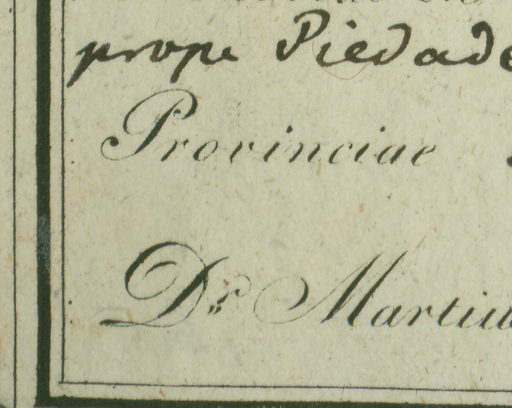 prope Piedade
Provinciae
Dr. Martius